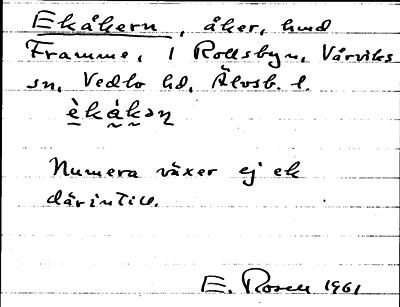 Ekåkern, åker, hmd
Framme, 1 Rollsbyn, Vårviks
sn, Vedbo hd, Älvsb. l.
è̱kà̰kəɳ
Numera växer ej ek
därintill.
E. Rosell 1961